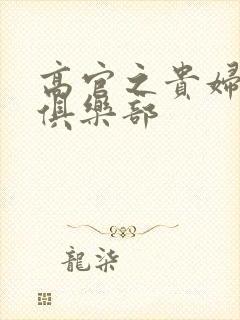 高官之貴婦
俱樂部
龍柒